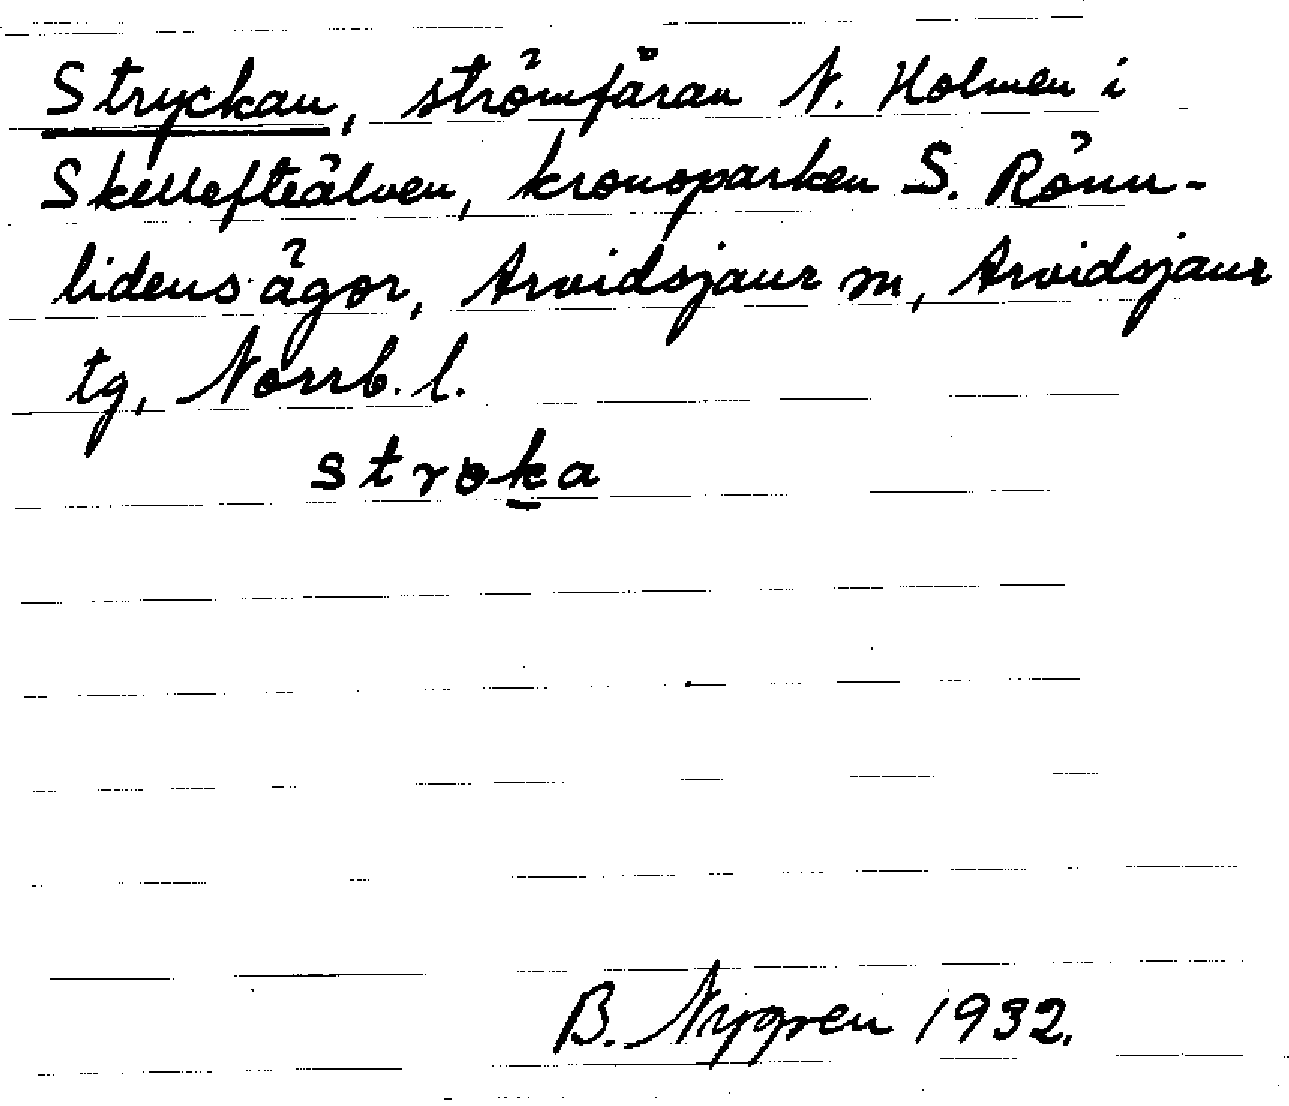 Stryckan, strömfåran N. Holmen i
Skellefteälven, kronoparken S. Rönn-
lidens ägor, Arvidsjaur sn, Arvidsjaur
tg, Norrb. l.
stroka
B. Nygren 1932.